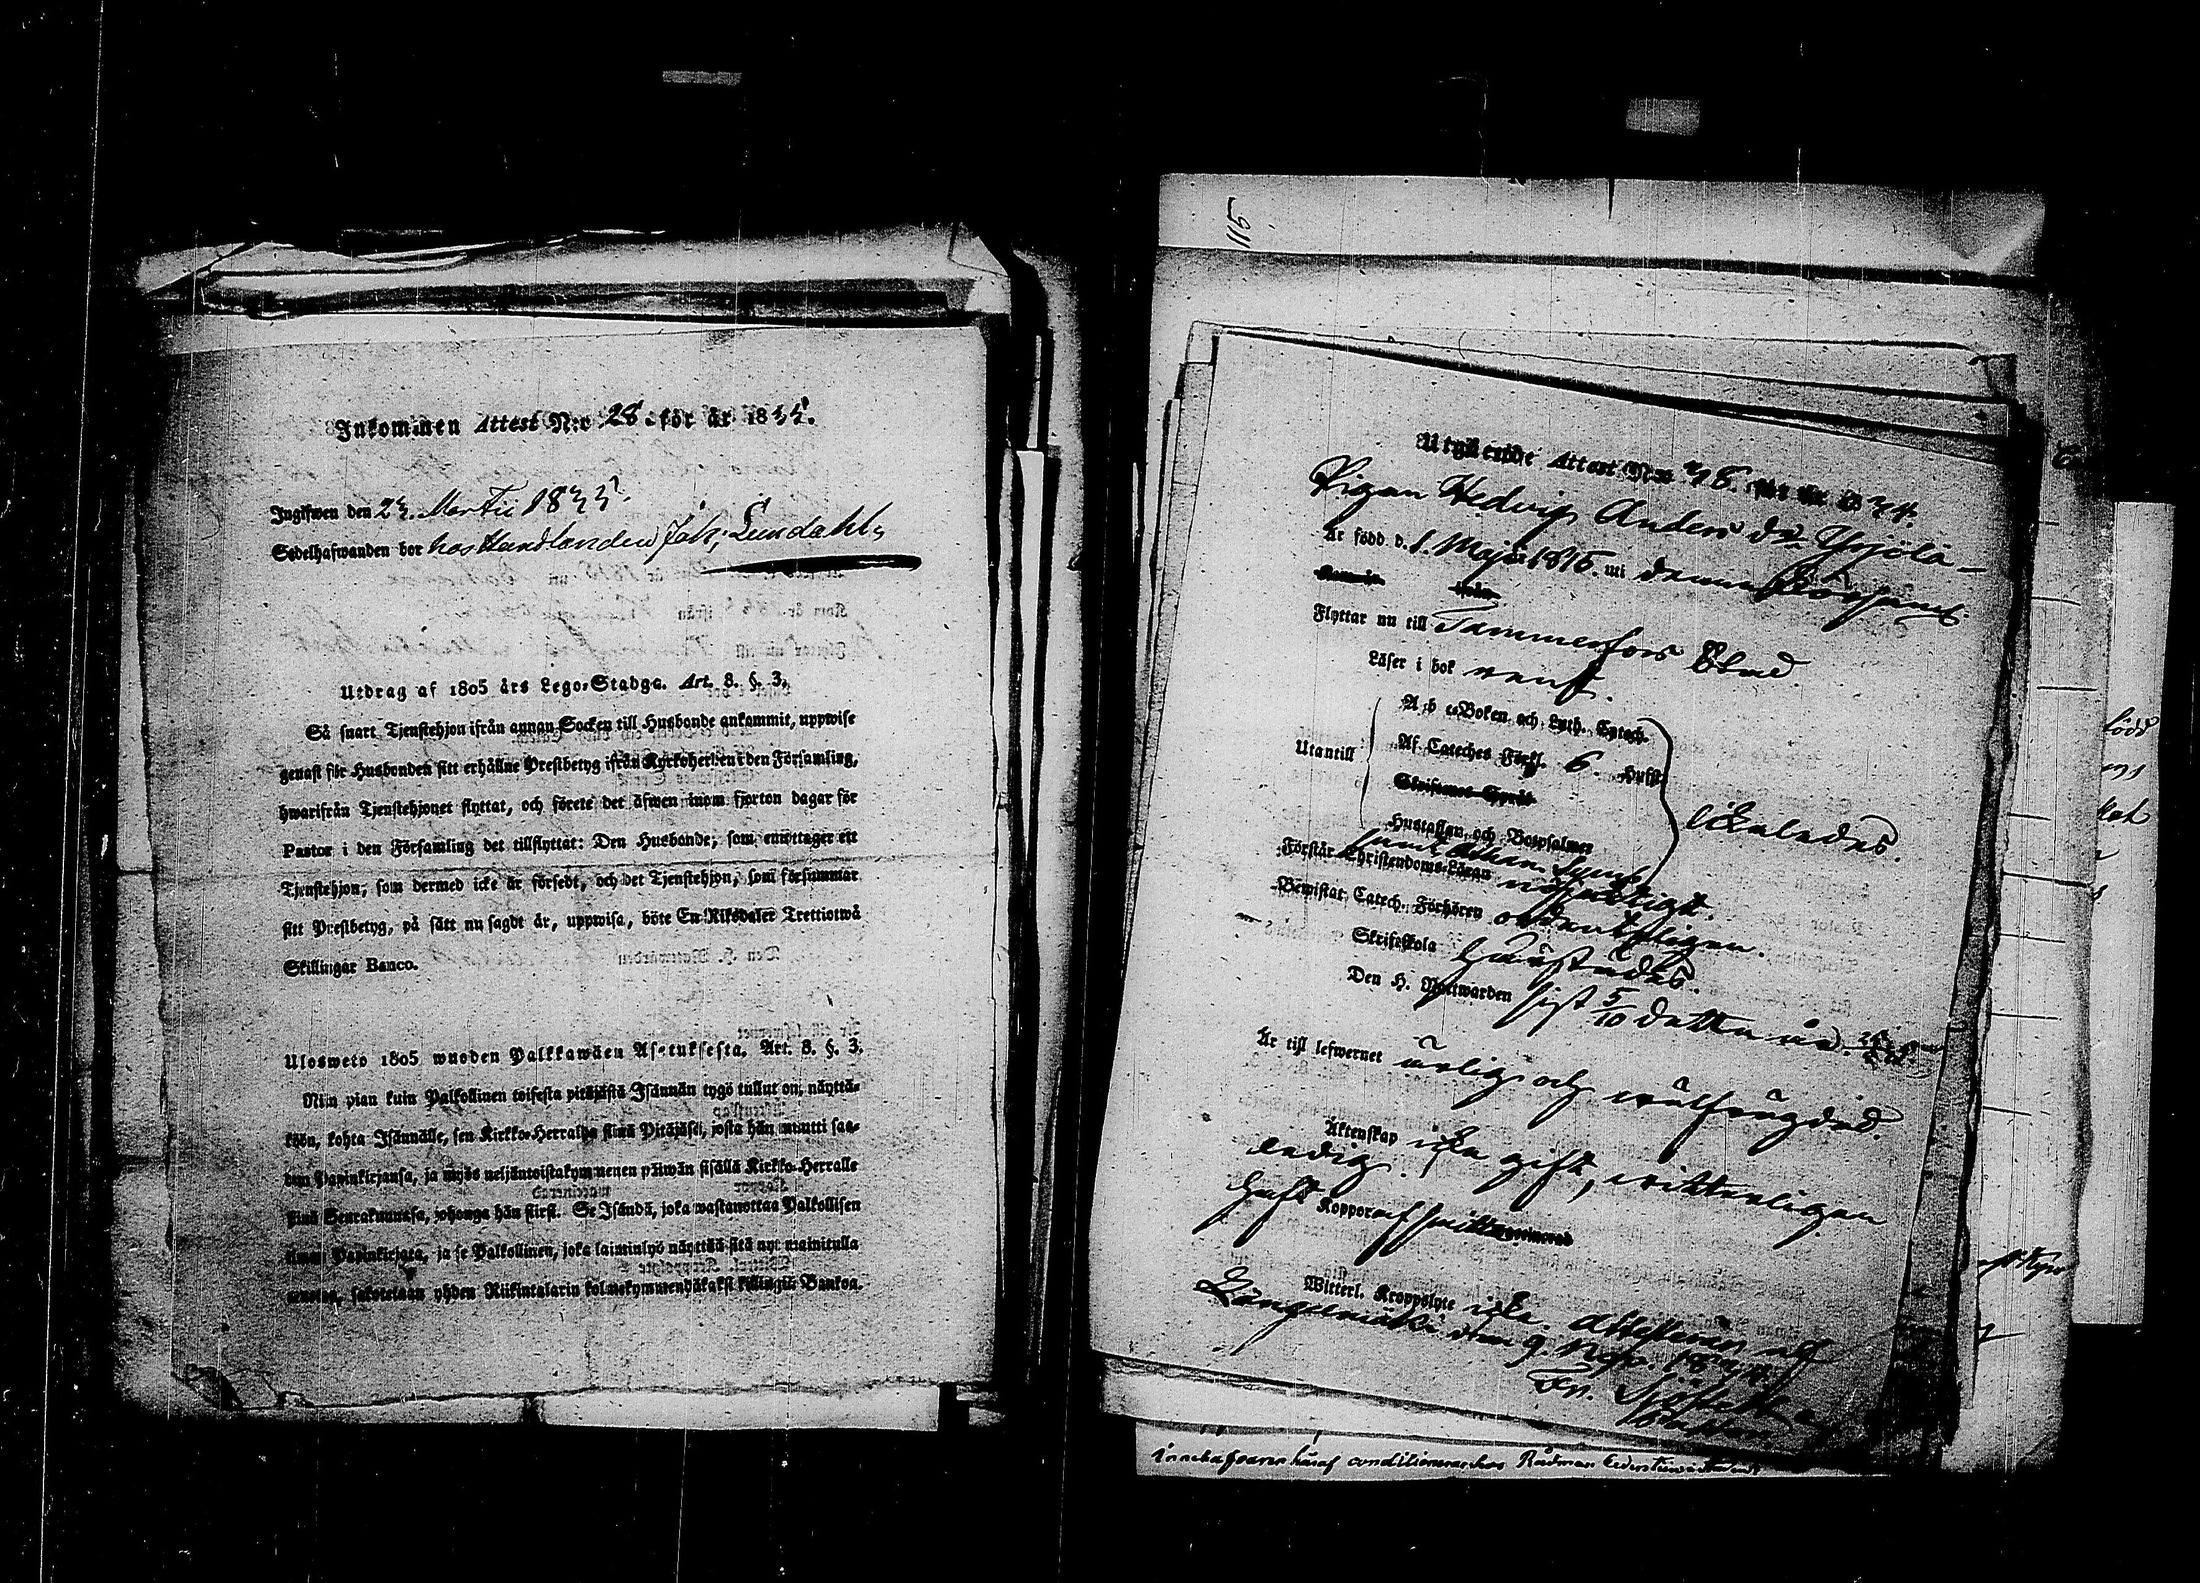 Inkommen Attest N:o 28 för år 1835.
Ingifwen den 23. Martii 1835.
Sedelhafwanden bor hos Handlanden Joh; Sundahl,
Utdrag af 1805 års Lego-Stadga. Art. 8. §. 3.
Så snart Tjenstehjon ifrån annan Socken till Husbonde ankommit, uppwise
genast för Husbonden sitt erhållne Prestbetyg ifrån Kyrkoherden i den Församling,
hwarifrån Tjenstehjonet flyttat, och förete det äfwen inom fjorton dagar för
Pastor i den Församling det tillflyttat: Den Husbonde, som emottager ett
Tjenstehjon, som dermed icke är försedt, och det Tjenstehjon, som försummar
sitt Prestbetyg, på sätt nu sagdt är, uppwisa, böte En Riksdaler Trettiotwå
Skillingar Banco.
Ulosweto 1805 wuoden Palkkawäen Asetuksesta. Art. 8. §. 3.
Niin pian kuin Palkollinen toisesta pitäjästä Isännän tygö tullut on, näyttä-
köön, kohta Isännälle, sen Kirkko-Herralta siinä Pitäjäsä, josta hän muutti saa-
dun Papinkirjansa, ja myös neljäntoistakymmenen päiwän sisällä Kirkko-Herralle
siinä Seurakunnasa, johonga hän siirsi. Se Isändä, joka wastanottaa Palkollisen
ilman Papinkirjata, ja se Palkollinen, joka laiminlyö näyttää sitä nyt mainitulla
muotoa, sakotetaan yhden Riikintalarin kolmekymmendäkaksi killingiä Bankoa.
115
Utgående Attest N:o 46. för år 1834.
Pigan Hedvig Anders dr Yrjölä
Är född d. 1. Maji 1815. uti denna Församl.
Kom år ifrån
Flyttar nu till Tammerfors Stad
Läser i bok rent.
A b c Boken och Luth. Catech.
Utantill Af Cateches Förkl. 6. Hufst.
Skrifternes Språk
likaledes.
Hustaflan och Botpsalmer
samt Athan. Symb.
Förstår Christendoms-Läran nöjaktligt.
Bewistat Catech. Förhören ordentligen.
Skriftskola
Den H. Nattwarden sist 5/10 detta år.
Är till lefwernet ärlig och wälfrägdad.
Äktenskap icke gift, witterligen
ledig.
haft Koppor af sitt vaccinerad
Witterl. Kroppslyte icke. Attesteras af
Längelmäki den 9. Nov. 1834.
conditionerar hos Rådman